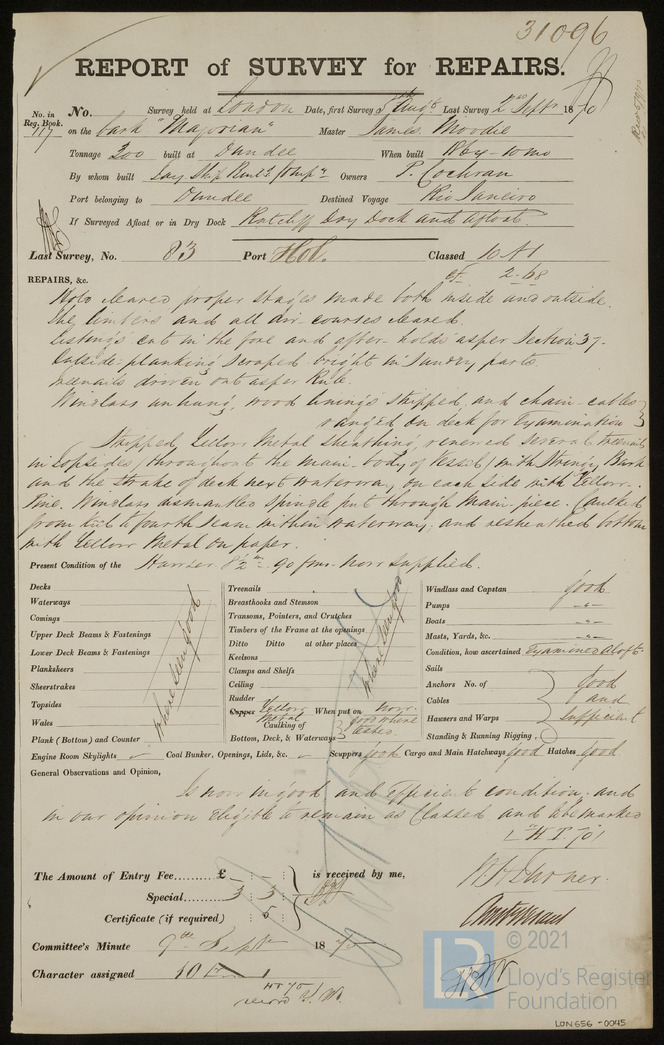 31096
REPORT of SURVEY for REPAIRS.
No. in Reg. Book.
No. Survey held at London Date, first Survey Last Survey 2nd Sept 1870
on the bark "Majorian" Master James Moodie
Tonnage 300 built at Dundee When built 1864
By whom built Owners P. Cochran
Port belonging to Dundee Destined Voyage Rio Janeiro
If Surveyed Afloat or in Dry Dock Ratcliff Dry Dock and Afloat
Last Survey, No. 83 Port Hol. Classed 10 A1
2-68
REPAIRS, &c.
Hold cleared proper stages made both inside and outside.
The limbers and all air courses cleared
Listings cut in the fore and after holds as per Section 37.
Outside planking scraped bright in sundry parts
Treenails driven out as per Rule.
Windlass unhung, wood linings stripped, and chain-cables
ranged on deck for Examination
Stripped Yellow Metal sheathing, renewed several treenails
in topsides, throughout the main body of Vessel, with Stringy Bark
and the strake of deck next waterway on each side with Yellow
Pine. Windlass dismantled spindle put through main-piece. Caulked
from to fourth seam within waterway; and resheathed bottom
with Yellow Metal on paper.
Present Condition of the Hawser 8½ in 90 fms. now supplied.
Decks
Waterways
Comings
Upper Deck Beams & Fastenings
Lower Deck Beams & Fastenings
Planksheers
Sheerstrakes
Topsides
Wales
Plank (Bottom) and Counter
where seen good
Treenails
Breasthooks and Stemson
Transoms, Pointers, and Crutches
Timbers of the Frame at the openings
Ditto Ditto at other places
Keelsons
Clamps and Shelfs
Ceiling
Rudder
where seen good
Copper Yellow Metal When put on Now
Caulking of
Bottom, Deck, & Waterways good where
Windlass and Capstan good
Pumps -"-
Boats -"-
Masts, Yards, &c. -"-
Condition, how ascertained Examined Aloft.
Sails
Anchors No. of
Cables
Hawsers and Warps
Standing & Running Rigging
good and sufficient
Engine Room Skylights Coal Bunker, Openings, Lids, &c. Scuppers good Cargo and Main Hatchways good Hatches good
General Observations and Opinion,
Is now in good and efficient condition; and
in our opinion Eligible to remain as Classed and be marked
The Amount of Entry Fee...... £ : : is received by me,
Special...... 3 : 3 :
Certificate (if required) : 5 :
Committee's Minute 9th Sept 1870
Character assigned 10
© 2021
LR
Lloyd's Register
Foundation
LON656-0045